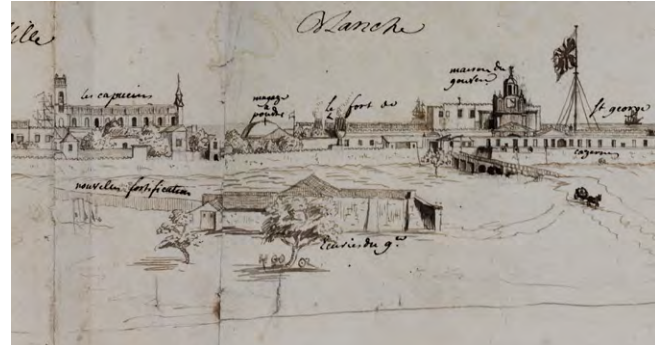 ville
Blanche
les capucins
magaz
à
poudre
le fort de
maison du
gouver.
St george
cazernes
nouvelles fortification
Ecuries du g.er